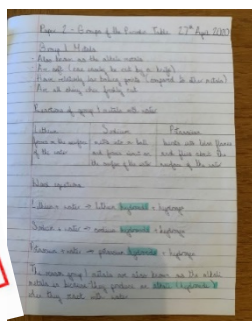 Paper 2 - Groups of the Periodic Table 27th April 2020
Group 1 Metals
- Also known as the alkali metals
- Are soft (can easily be cut by a knife)
- Have relatively low boiling points (compared to other metals)
- Are all shiny when freshly cut
Reactions of group 1 metals with water
Lithium Sodium Potassium
fizzes on the surface melts into a ball bursts into flames
of the water and fizzes about on and fizzes about the
the surface of the water surface of the water
Word equations
Lithium + water → lithium hydroxide + hydrogen
Sodium + water → sodium hydroxide + hydrogen
Potassium + water → potassium hydroxide + hydrogen
The reason group 1 metals are also known as the alkali
metals is because they produce an alkali (hydroxide)
when they react with water